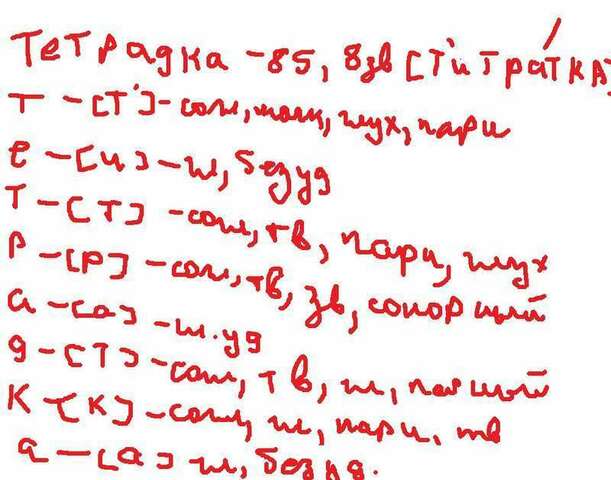 Тетрадка - 8б, 8зв [т'итра́тка]
т - [т'] - согл, мягк, глух, парн
е - [и] - гл, безуд
т - [т] - согл, тв, парн, глух
р - [р] - согл, тв, зв, сонорный
а - [а] - гл. уд
д - [т] - согл, тв, гл, парный
к - [к] - согл, гл, парн, тв
а - [а] гл, безуд.